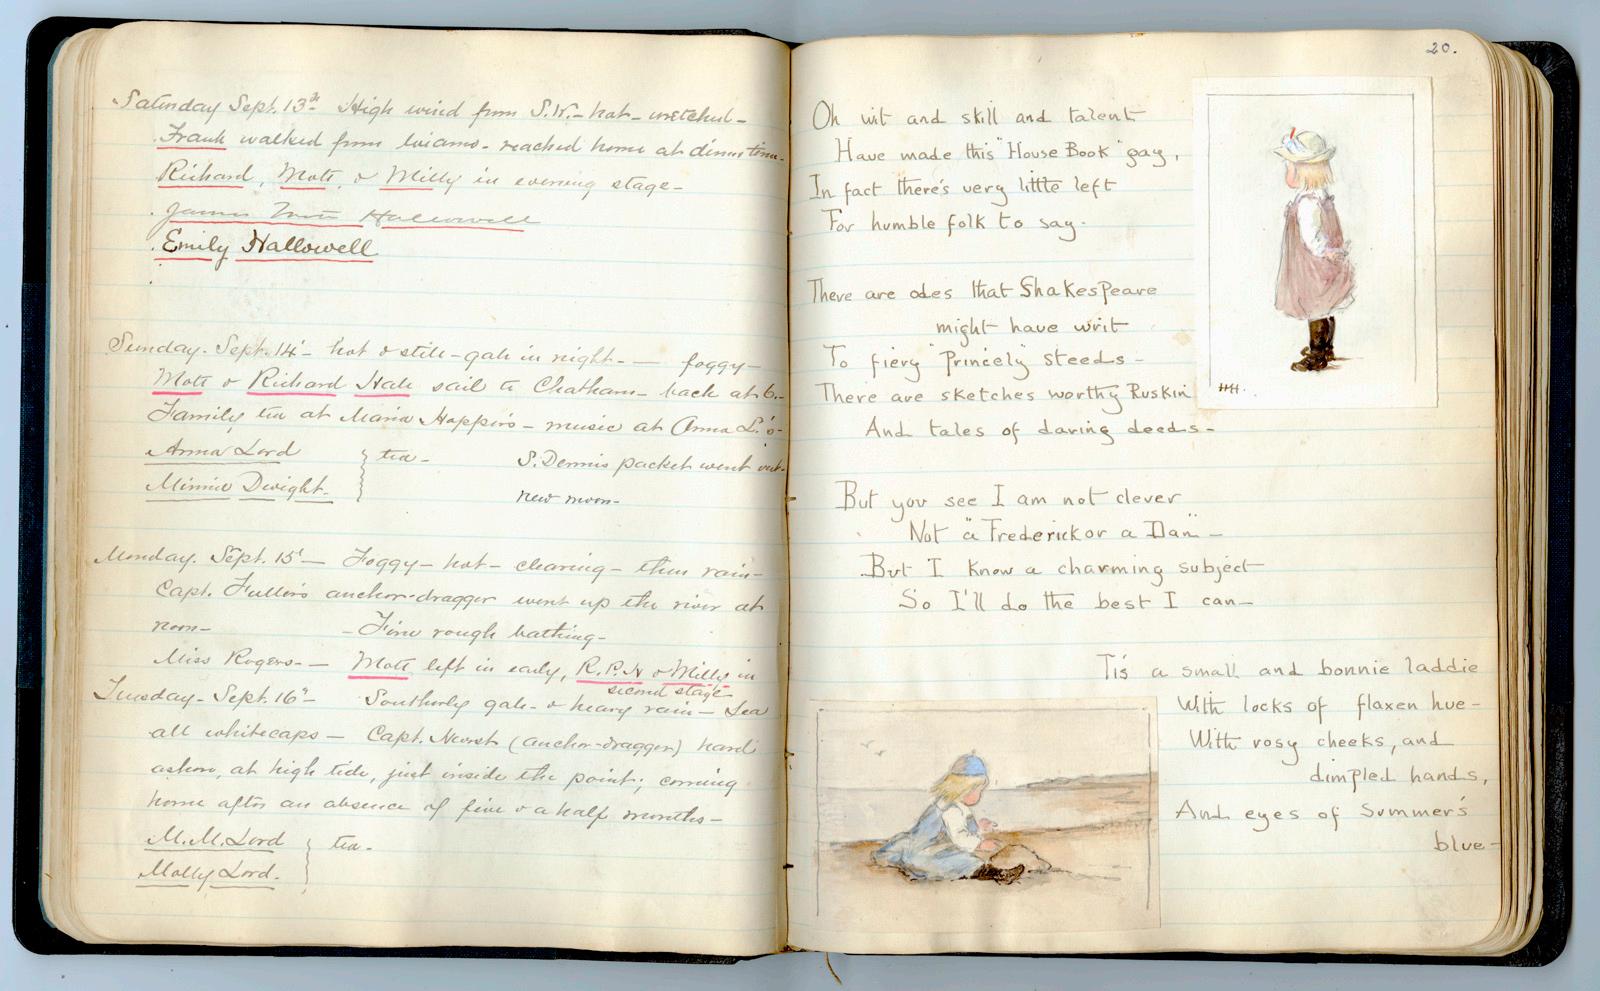 Saturday Sept. 13th High wind from S.W.- hot - wretched -
Frank walked from - reached home at dinner time -
Richard, Mott, & Milly in evening stage -
James Mott Hallowell
Emily Hallowell
Sunday. Sept. 14 - hot & still - gale in night - — foggy -
Mott & Richard Hale sail to Chatham - back at 6. -
Family tea at Maria Hopper's - music at Anna L.'s -
Anna Lord } tea - S. Dennis packet went out -
Minnie Dwight. new moon -
Monday. Sept. 15 — Foggy - hot - clearing - then rain -
Capt. Fuller's anchor-dragger went up the river at
noon - - Fine rough bathing -
Miss Rogers - — Mott left in early, R.P.H & Milly in
second stage
Tuesday - Sept. 16 - Southerly gale - & heavy rain - Sea
all whitecaps — Capt. (anchor-dragger) hard
ashore, at high tide, just inside the point; coming
home after an absence of five & a half months -
M. M. Lord } tea -
Molly Lord.
20.
Oh wit and skill and talent
Have made this "House Book" gay,
In fact there's very little left
For humble folk to say.
There are odes that Shakespeare
might have writ
To fiery "Princely" steeds -
There are sketches worthy Ruskin
And tales of daring deeds -
But you see I am not clever
Not "a Frederick or a Dan" -
But I know a charming subject
So I'll do the best I can -
Tis a small and bonnie laddie
With locks of flaxen hue -
With rosy cheeks, and
dimpled hands,
And eyes of Summer's
blue -